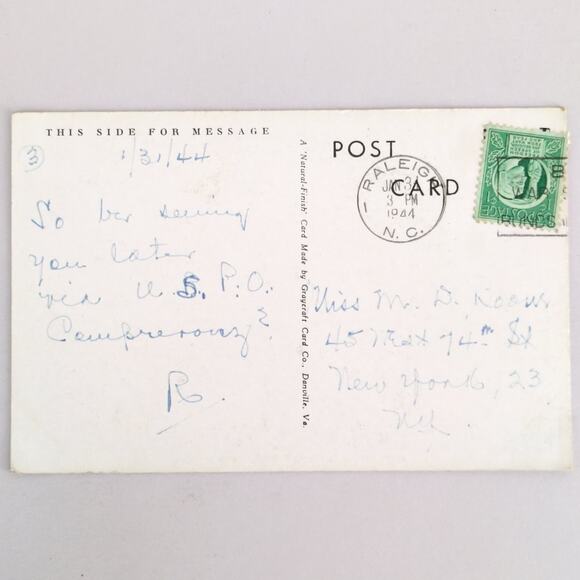 THIS SIDE FOR MESSAGE
3
1/31/44
So
you later
via U.S. P.O.
R.
A "Natural-Finish" Card Made by Graycraft Card Co., Danville, Va.
POST
CARD
RALEIGH
JAN 31
3 PM
1944
N. C.
WAR
BONDS
Miss M. D.
45 West 74th St
New York, 23
NY.